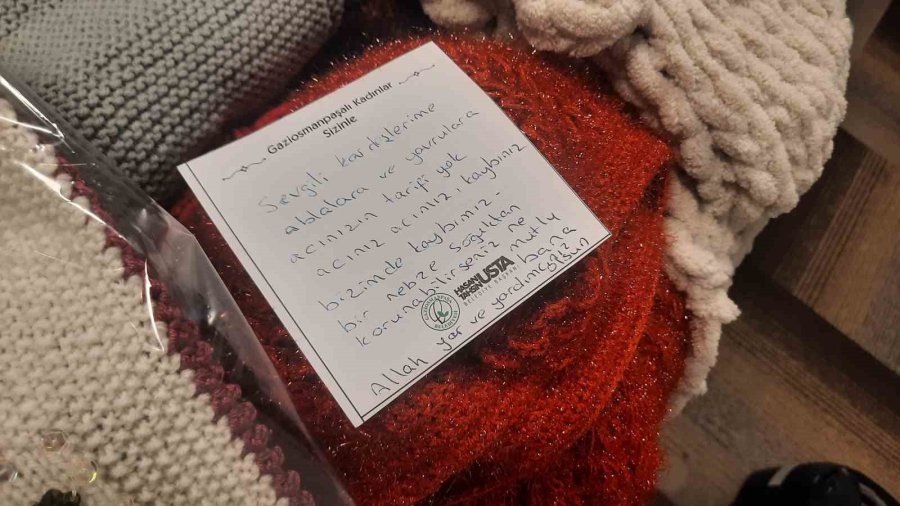 Gaziosmanpaşalı Kadınlar
Sizinle
Sevgili kardeşlerime
ablalara ve yavrulara
acınızın tarifi yok
acınız acımız, kaybınız
bizimde kaybımız.
bir nebze soğuktan
korunabilirseniz ne mutlu
bana
Allah yar ve yardımcınız olsun
HASAN
TAHSİN USTA
BELEDİYE BAŞKANI
GAZİOSMANPAŞA
BELEDİYESİ